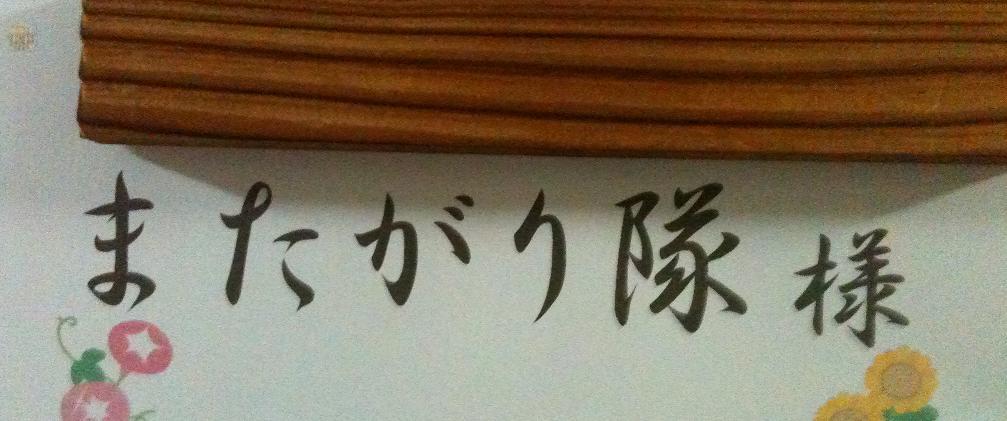 またがり隊 様